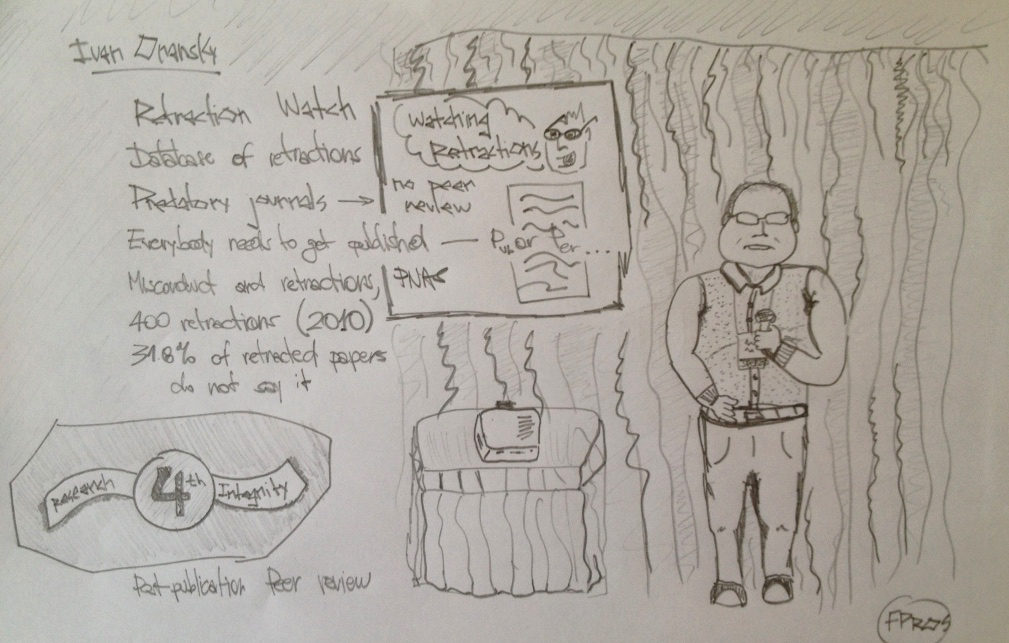 Ivan Oransky
Retraction Watch
Database of retractions
Predatory journals → no peer review
Everybody needs to get published — Pub or Per ...
Misconduct and retractions, PNAS
400 retractions (2010)
31.8% of retracted papers
do not say it
Watching
Retractions
Research 4th Integrity
Post-publication Peer review
FPROS